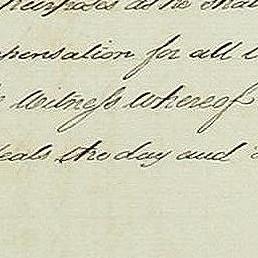 purposes as he shall
pensation for all
Witness whereof
seals the day and